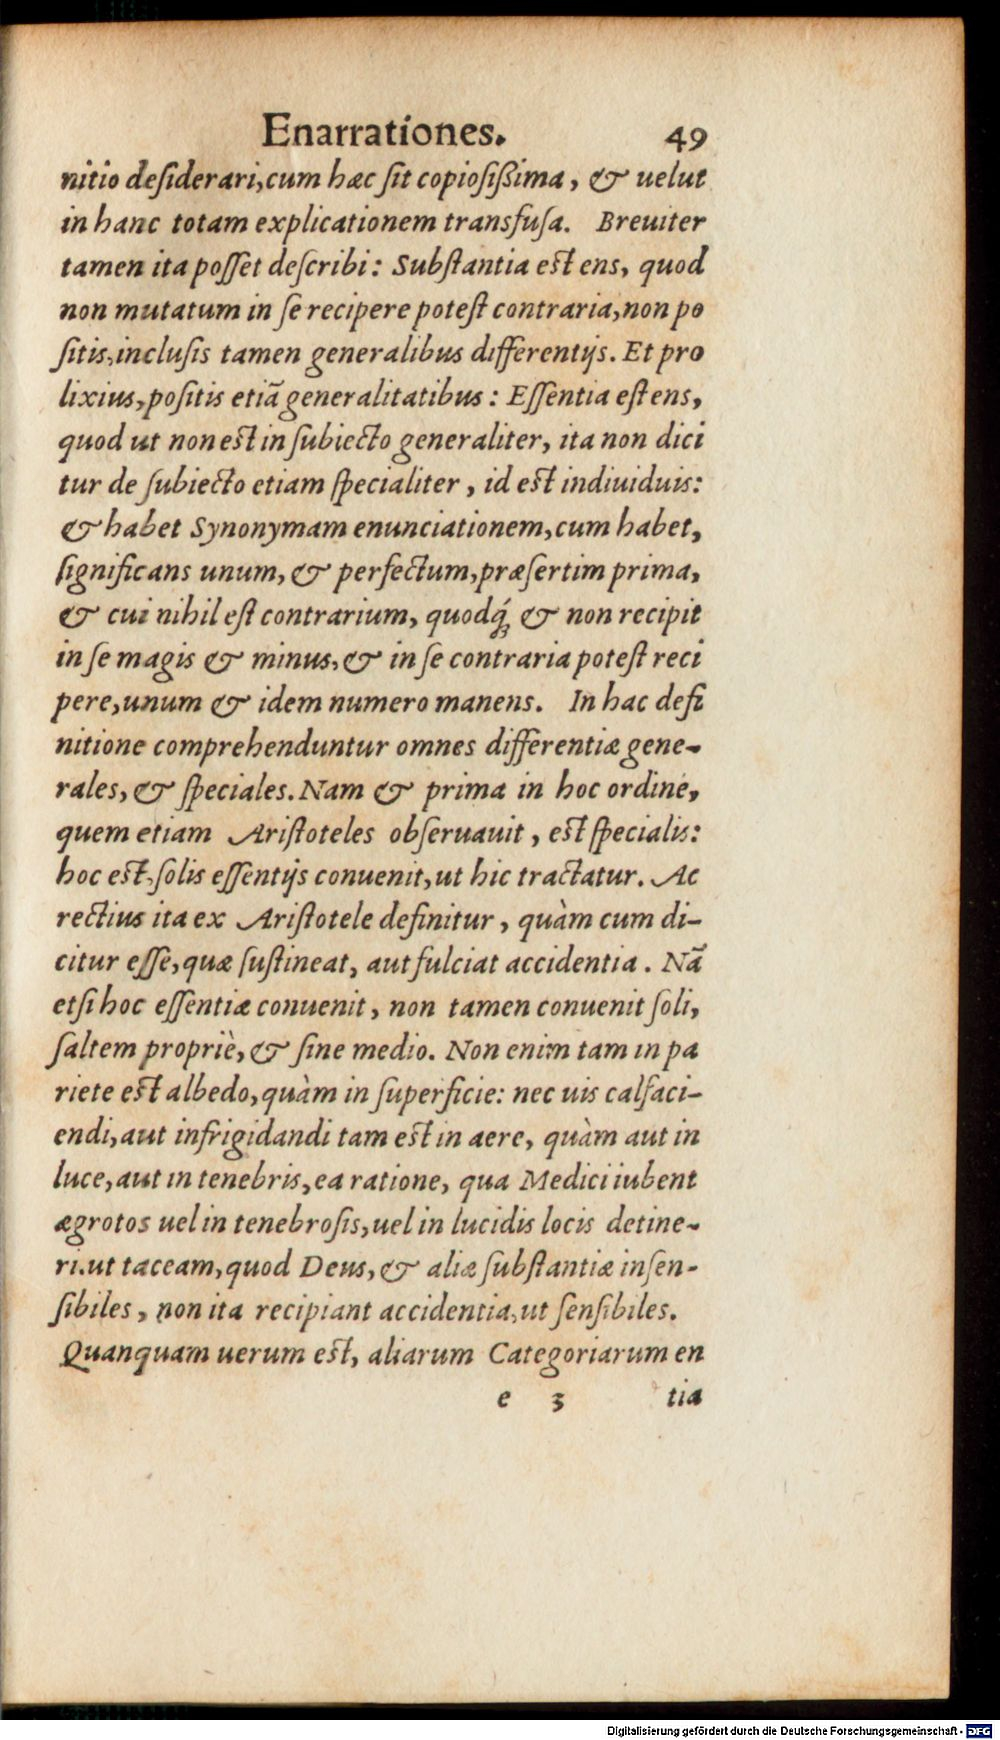 Enarrationes. 49
nitio deſiderari, cum hæc ſit copioſiſſima, & uelut
in hanc totam explicationem transfuſa. Breuiter
tamen ita poſſet deſcribi: Subſtantia eſt ens, quod
non mutatum in ſe recipere poteſt contraria, non po
ſitis, incluſis tamen generalibus differentijs. Et pro
lixius, poſitis etiã generalitatibus: Eſſentia eſt ens,
quod ut non eſt in ſubiecto generaliter, ita non dici
tur de ſubiecto etiam ſpecialiter, id eſt indiuiduis:
& habet Synonymam enunciationem, cum habet,
ſignificans unum, & perfectum, præſertim prima,
& cui nihil eſt contrarium, quodq́; & non recipit
in ſe magis & minus, & in ſe contraria poteſt reci
pere, unum & idem numero manens. In hac defi
nitione comprehenduntur omnes differentiæ gene-
rales, & ſpeciales. Nam & prima in hoc ordine,
quem etiam Ariſtoteles obſeruauit, eſt ſpecialis:
hoc eſt, ſolis eſſentijs conuenit, ut hic tractatur. Ac
rectius ita ex Ariſtotele definitur, quàm cum di-
citur eſſe, quæ ſuſtineat, aut fulciat accidentia. Nã
etſi hoc eſſentiæ conuenit, non tamen conuenit ſoli,
ſaltem propriè, & ſine medio. Non enim tam in pa
riete eſt albedo, quàm in ſuperficie: nec uis calfaci-
endi, aut infrigidandi tam eſt in aere, quàm aut in
luce, aut in tenebris, ea ratione, qua Medici iubent
ægrotos uel in tenebroſis, uel in lucidis locis detine-
ri. ut taceam, quod Deus, & aliæ ſubſtantiæ inſen-
ſibiles, non ita recipiant accidentia, ut ſenſibiles.
Quanquam uerum eſt, aliarum Categoriarum en
e 3 tia
Digitalisierung gefördert durch die Deutsche Forschungsgemeinschaft - DFG